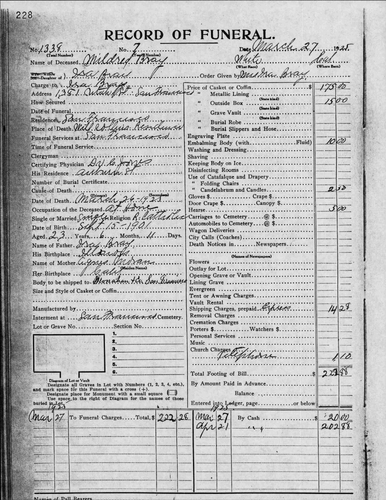 228
RECORD OF FUNERAL.
No. 1338 No. 7 Date March 27 1925
Name of Deceased Mildred Bray White
Ida Bray Order Given by Mrs Ira Bray
Charge to Ira Bray
Address 1351 San Francisco
How Secured
Date of Funeral
Residence San Francisco
Place of Death
Funeral Services at San Francisco
Time of Funeral Service
Clergyman
Certifying Physician Dr
His Residence Auburn
Number of Burial Certificate
Cause of Death
Date of Death March 26 1925
Occupation of Deceased At Home
Single or Married Single Religion Catholic
Date of Birth Sept 15 1901
Aged 23 Years 6 Months 11 Days
Name of Father Ira Bray
His Birthplace
Name of Mother Agnes Moran
Her Birthplace Calif
Body to be shipped to San Francisco
Size and Style of Casket or Coffin
Manufactured by
Interment at San Francisco Cemetery
Lot or Grave No. Section No.
Diagram of Lot or Vault
Designate all Graves in Lot with Numbers (1, 2, 3, 4, etc.), and mark space for this Funeral with a cross (+).
Designate place for Monument with a small square □
Use space to the right of Diagram for the names of those buried in Lot.
Price of Casket or Coffin $ 175 00
" Metallic Lining
" Outside Box 15 00
" Grave Vault
" Burial Robe
" Burial Slippers and Hose
Engraving Plate
Embalming Body (with Fluid) 10 00
Washing and Dressing
Shaving
Keeping Body on Ice
Disinfecting Rooms
Use of Catafalque and Drapery
" Folding Chairs
" Candelabrum and Candles 2 50
Gloves $ Crape $
Door Crape $ Canopy $
Hearse 5 00
Carriages to Cemetery @ $
Automobiles to Cemetery @ $
Wagon Deliveries
City Calls @ $
Death Notices in Newspapers
Flowers
Outlay for Lot
Opening Grave or Vault
Lining Grave
Evergreen
Tent or Awning Charges
Vault Rental
Shipping Charges, prepaid Express 14 28
Removal Charges
Cremation Charges
Porters $ Watchers $
Personal Services
Music
Church Charges
Telephone 1 10
Total Footing of Bill $
By Amount Paid in Advance
Balance
Entered into Ledger, page or below.
1925 1925
Mar 27 To Funeral Charges Total, $ 222 88 Mar 27 By Cash $ 20 00
Apr 21 202 88
Name of Pall Bearers